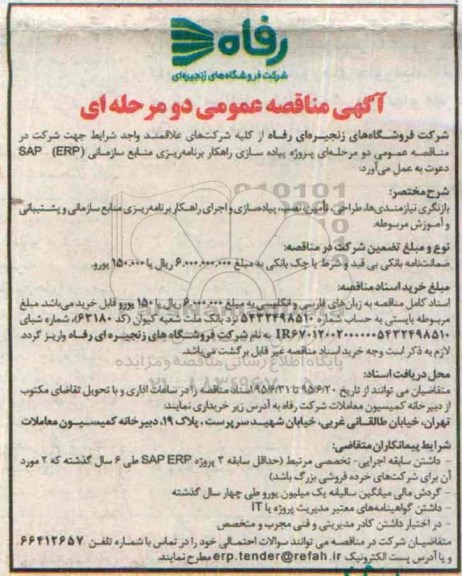 رفاه
شرکت فروشگاه‌های زنجیره‌ای
آگهی مناقصه عمومی دو مرحله ای
شرکت فروشگاه‌های زنجیره‌ای رفاه از کلیه شرکت‌های علاقمند واجد شرایط جهت شرکت در
مناقصه عمومی دو مرحله‌ای پروژه پیاده سازی راهکار برنامه‌ریزی منابع سازمانی (ERP) SAP
دعوت به عمل می‌آورد:
شرح مختصر:
بازنگری نیازمندی‌ها، طراحی، تأمین، نصب، پیاده‌سازی و اجرای راهکار برنامه‌ریزی منابع سازمانی و پشتیبانی
و آموزش مربوطه.
نوع و مبلغ تضمین شرکت در مناقصه:
ضمانت‌نامه بانکی بی قید و شرط یا چک بانکی به مبلغ ۶.۰۰۰.۰۰۰.۰۰۰ ریال یا ۱۵۰.۰۰۰ یورو.
مبلغ خرید اسناد مناقصه:
اسناد کامل مناقصه به زبان‌های فارسی و انگلیسی به مبلغ ۶.۰۰۰.۰۰۰ ریال یا ۱۵۰ یورو قابل خرید می‌باشد. مبلغ
مربوطه بایستی به حساب شماره ۵۴۳۲۴۹۸۵۱۰ نزد بانک ملت شعبه کیوان (کد ۶۳۱۸۰)، شماره شبای
IR۶۷۰۱۲۰۲۰۰۰۰۰۰۵۴۳۲۴۹۸۵۱۰ به نام شرکت فروشگاه های زنجیره ای رفاه واریز گردد.
لازم به ذکر است وجه خرید اسناد مناقصه غیر قابل برگشت می‌باشد.
محل دریافت اسناد:
متقاضیان می توانند از تاریخ ۹۵/۶/۲۰ تا ۹۵/۶/۳۱ اسناد مناقصه را در ساعات اداری و با تحویل تقاضای مکتوب
از دبیرخانه کمیسیون معاملات شرکت رفاه به آدرس زیر خریداری نمایند:
تهران، خیابان طالقانی غربی، خیابان شهید سرپرست، پلاک ۱۹، دبیرخانه کمیسیون معاملات
شرایط پیمانکاران متقاضی:
- داشتن سابقه اجرایی- تخصصی مرتبط (حداقل سابقه ۳ پروژه SAP ERP طی ۶ سال گذشته که ۲ مورد
آن برای شرکت‌های خرده فروشی بزرگ باشد)
- گردش مالی میانگین سالیانه یک میلیون یورو طی چهار سال گذشته
- داشتن گواهینامه‌های معتبر مدیریت پروژه یا IT
- در اختیار داشتن کادر مدیریتی و فنی مجرب و متخصص
متقاضیان شرکت در مناقصه می توانند سوالات احتمالی خود را در تماس با شماره تلفن ۶۶۴۱۲۶۵۷
و یا آدرس پست الکترونیک erp.tender@refah.ir مطرح نمایند.